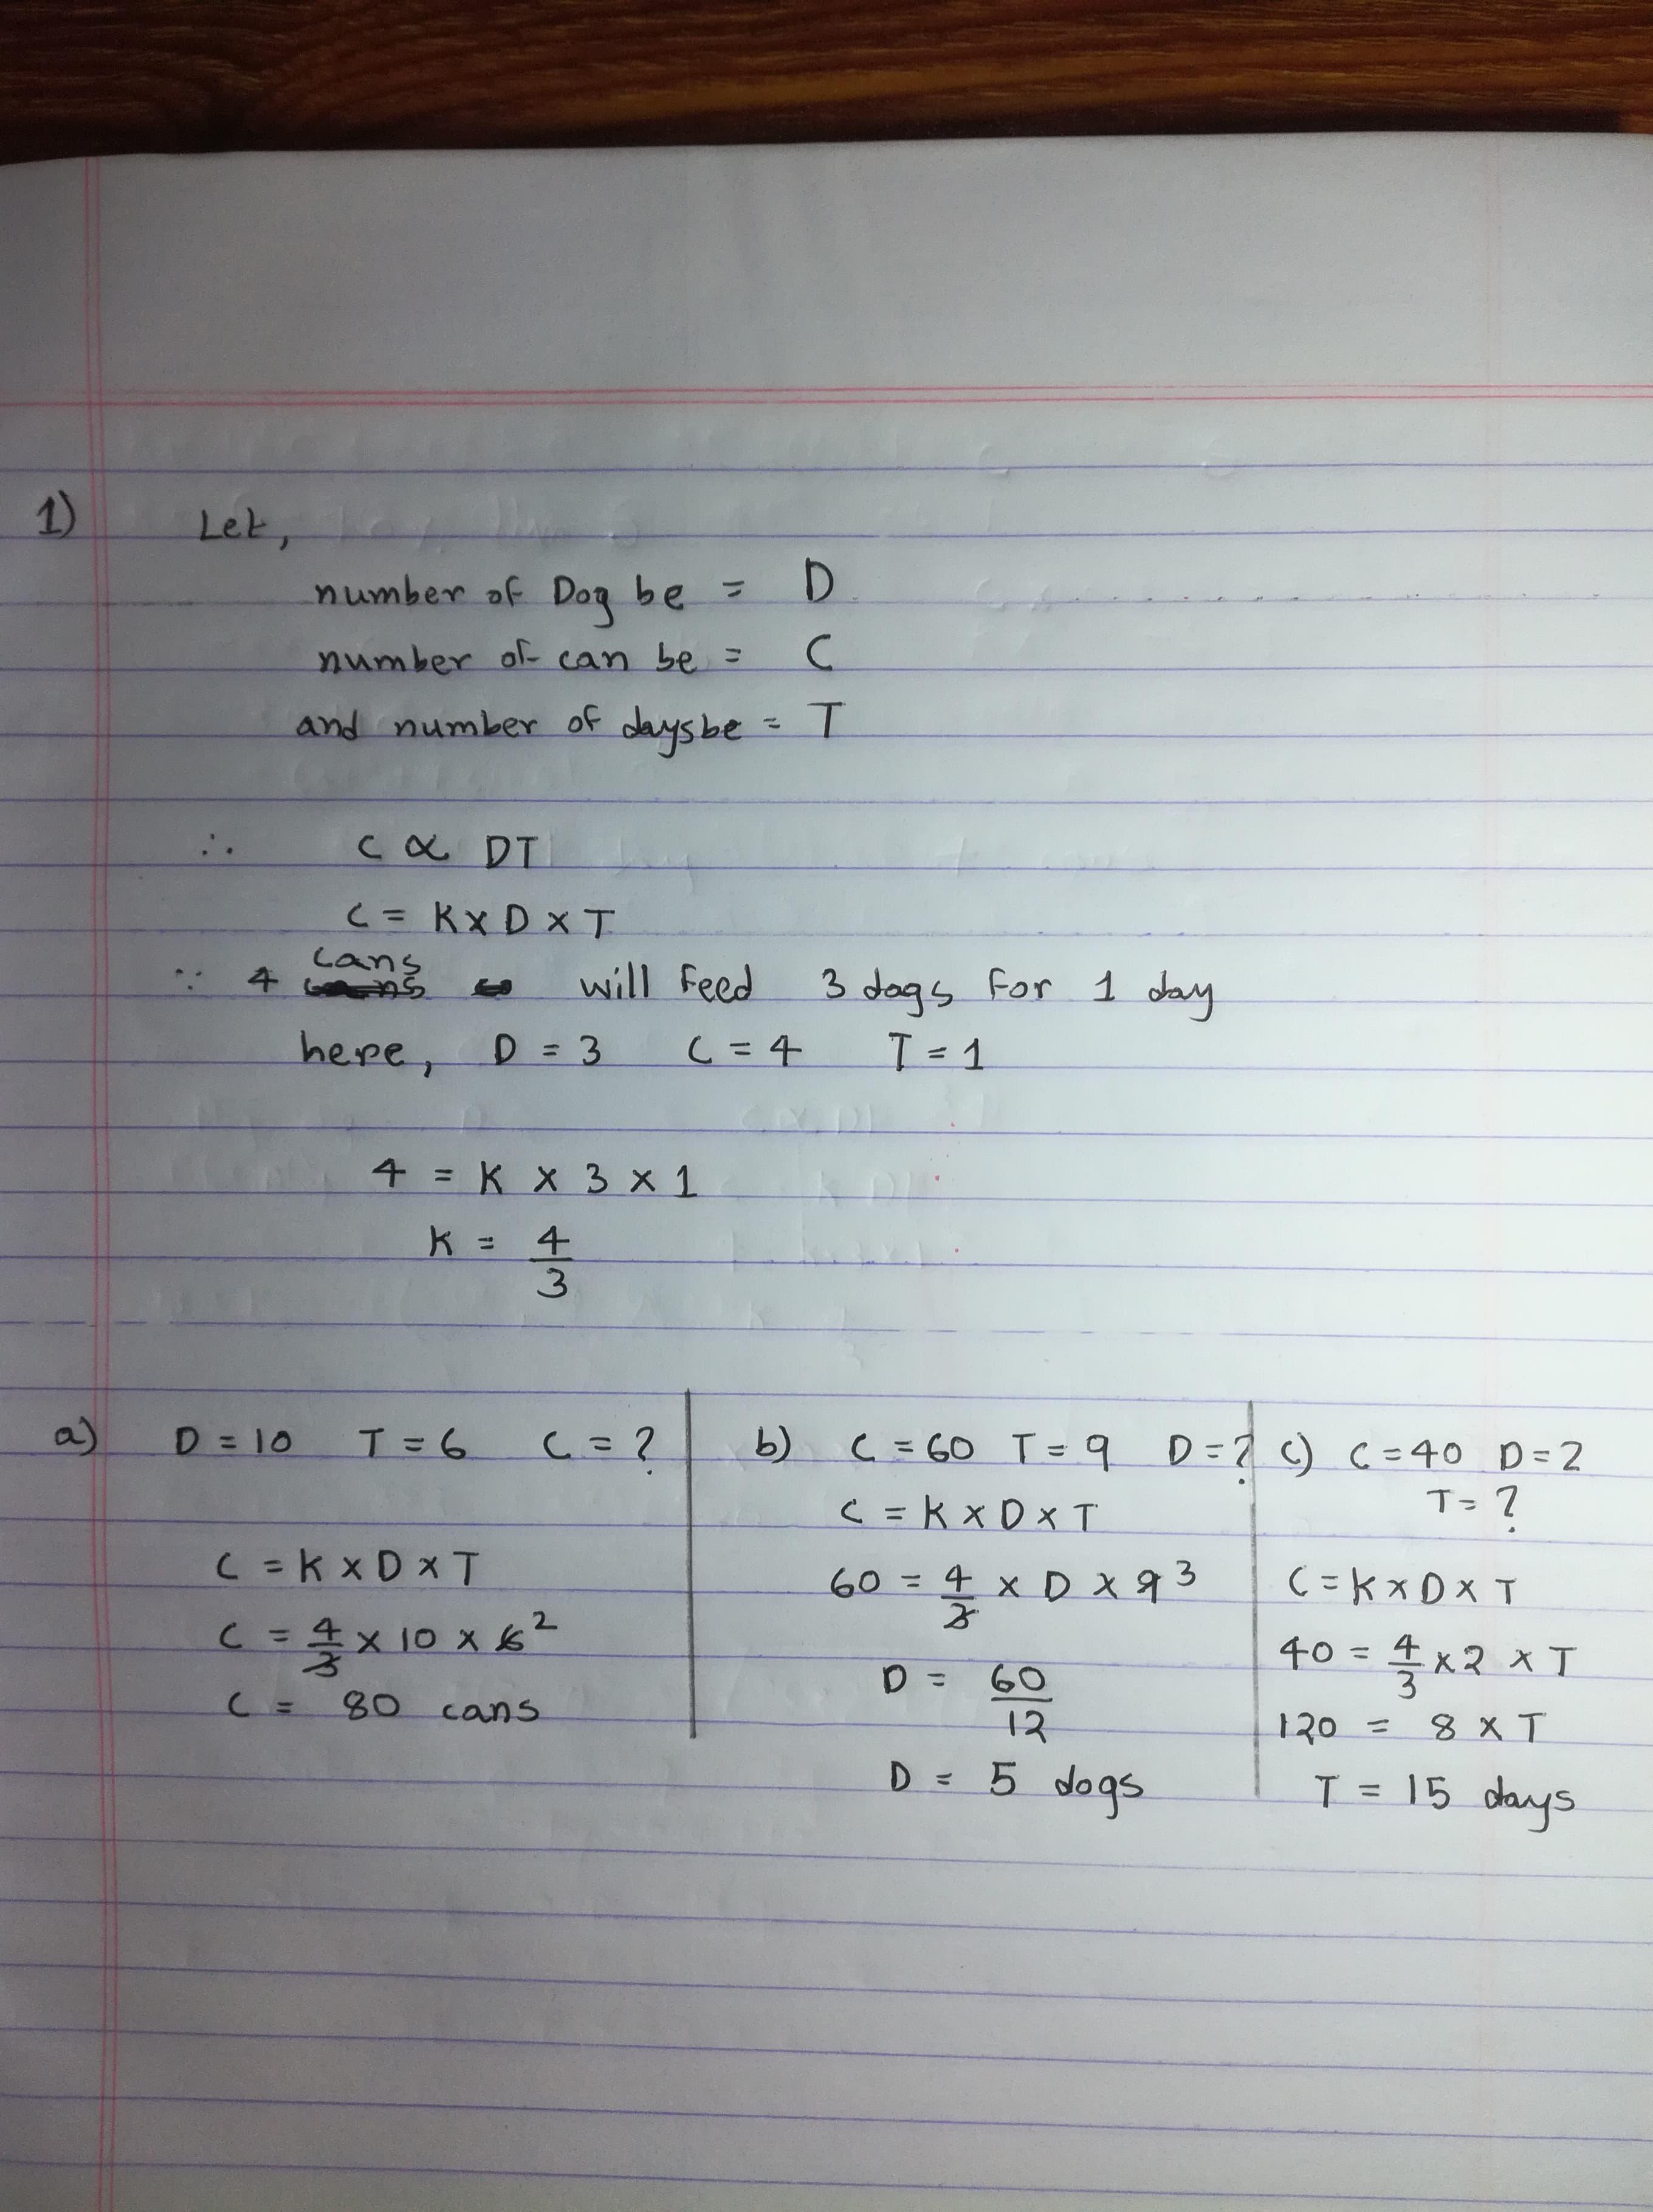 1) Let,
number of Dog be = D
number of can be = C
and number of days be = T
∴ C ∝ DT
C = K × D × T
∵ 4 cans will feed 3 dogs for 1 day
here, D = 3 C = 4 T = 1
4 = K × 3 × 1
K = 4/3
a) D = 10 T = 6 C = ?
C = K × D × T
C = 4/3 × 10 × 6 2
C = 80 cans
b) C = 60 T = 9 D = ?
C = K × D × T
60 = 4/3 × D × 9 3
D = 60/12
D = 5 dogs
c) C = 40 D = 2
T = ?
C = K × D × T
40 = 4/3 × 2 × T
120 = 8 × T
T = 15 days